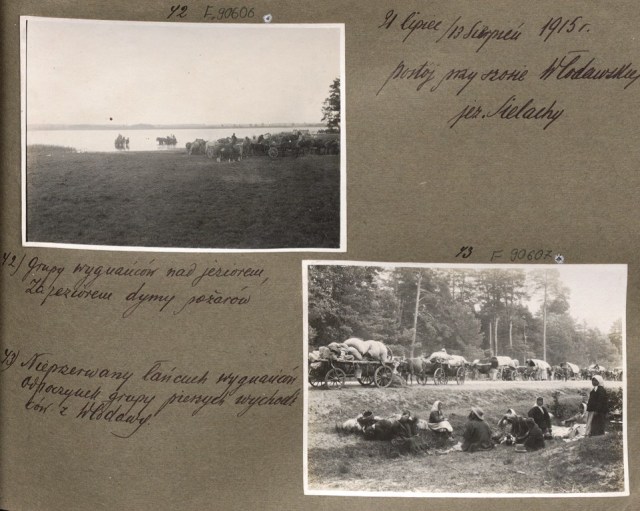 42 F. 90606
31 lipiec/13 Sierpień 1915 r.
postój przy szosie Włodawskiej
jez. Sielachy
42) Grupy wygnańców nad jeziorem,
Za jeziorem dymy pożarów
43 F 90607
43) Nieprzerwany łańcuch wygnańców
Odpoczynek grupy pieszych wychodź
ców z Włodawy